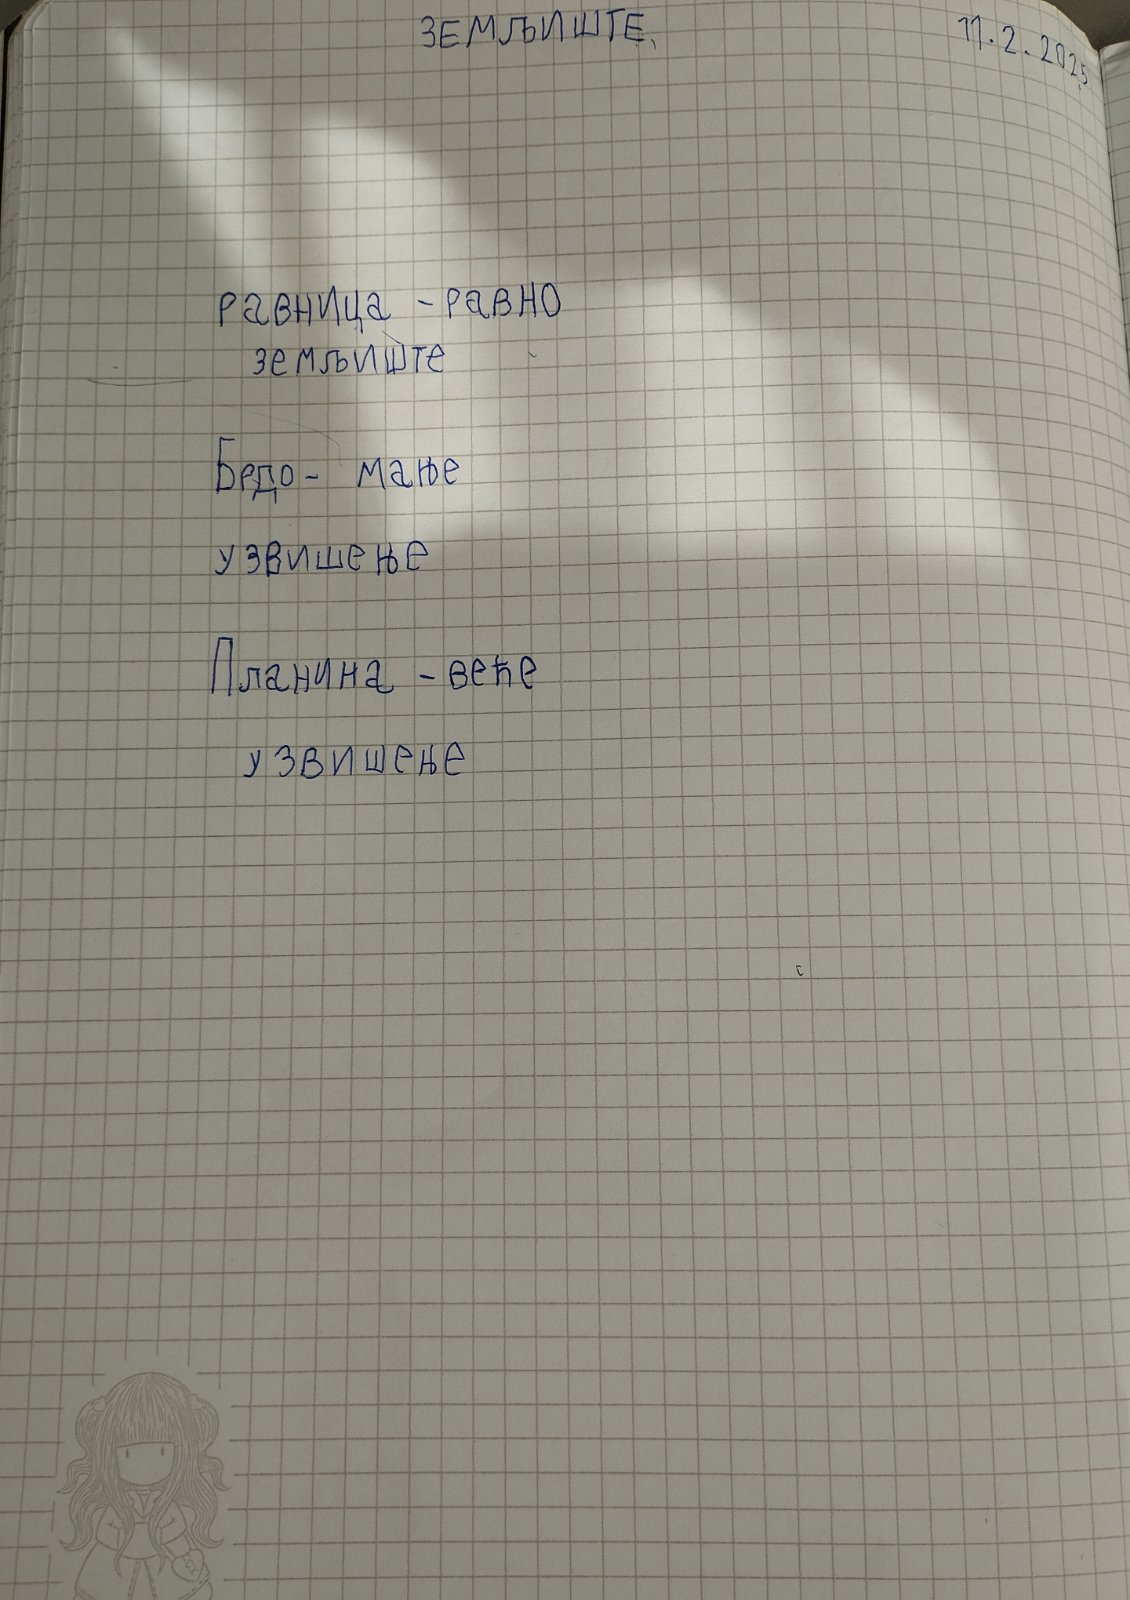 ЗЕМЉИШТЕ.
11.2.2025
равница - равно
земљиште
Брдо - мање
узвишење
Планина - веће
узвишење